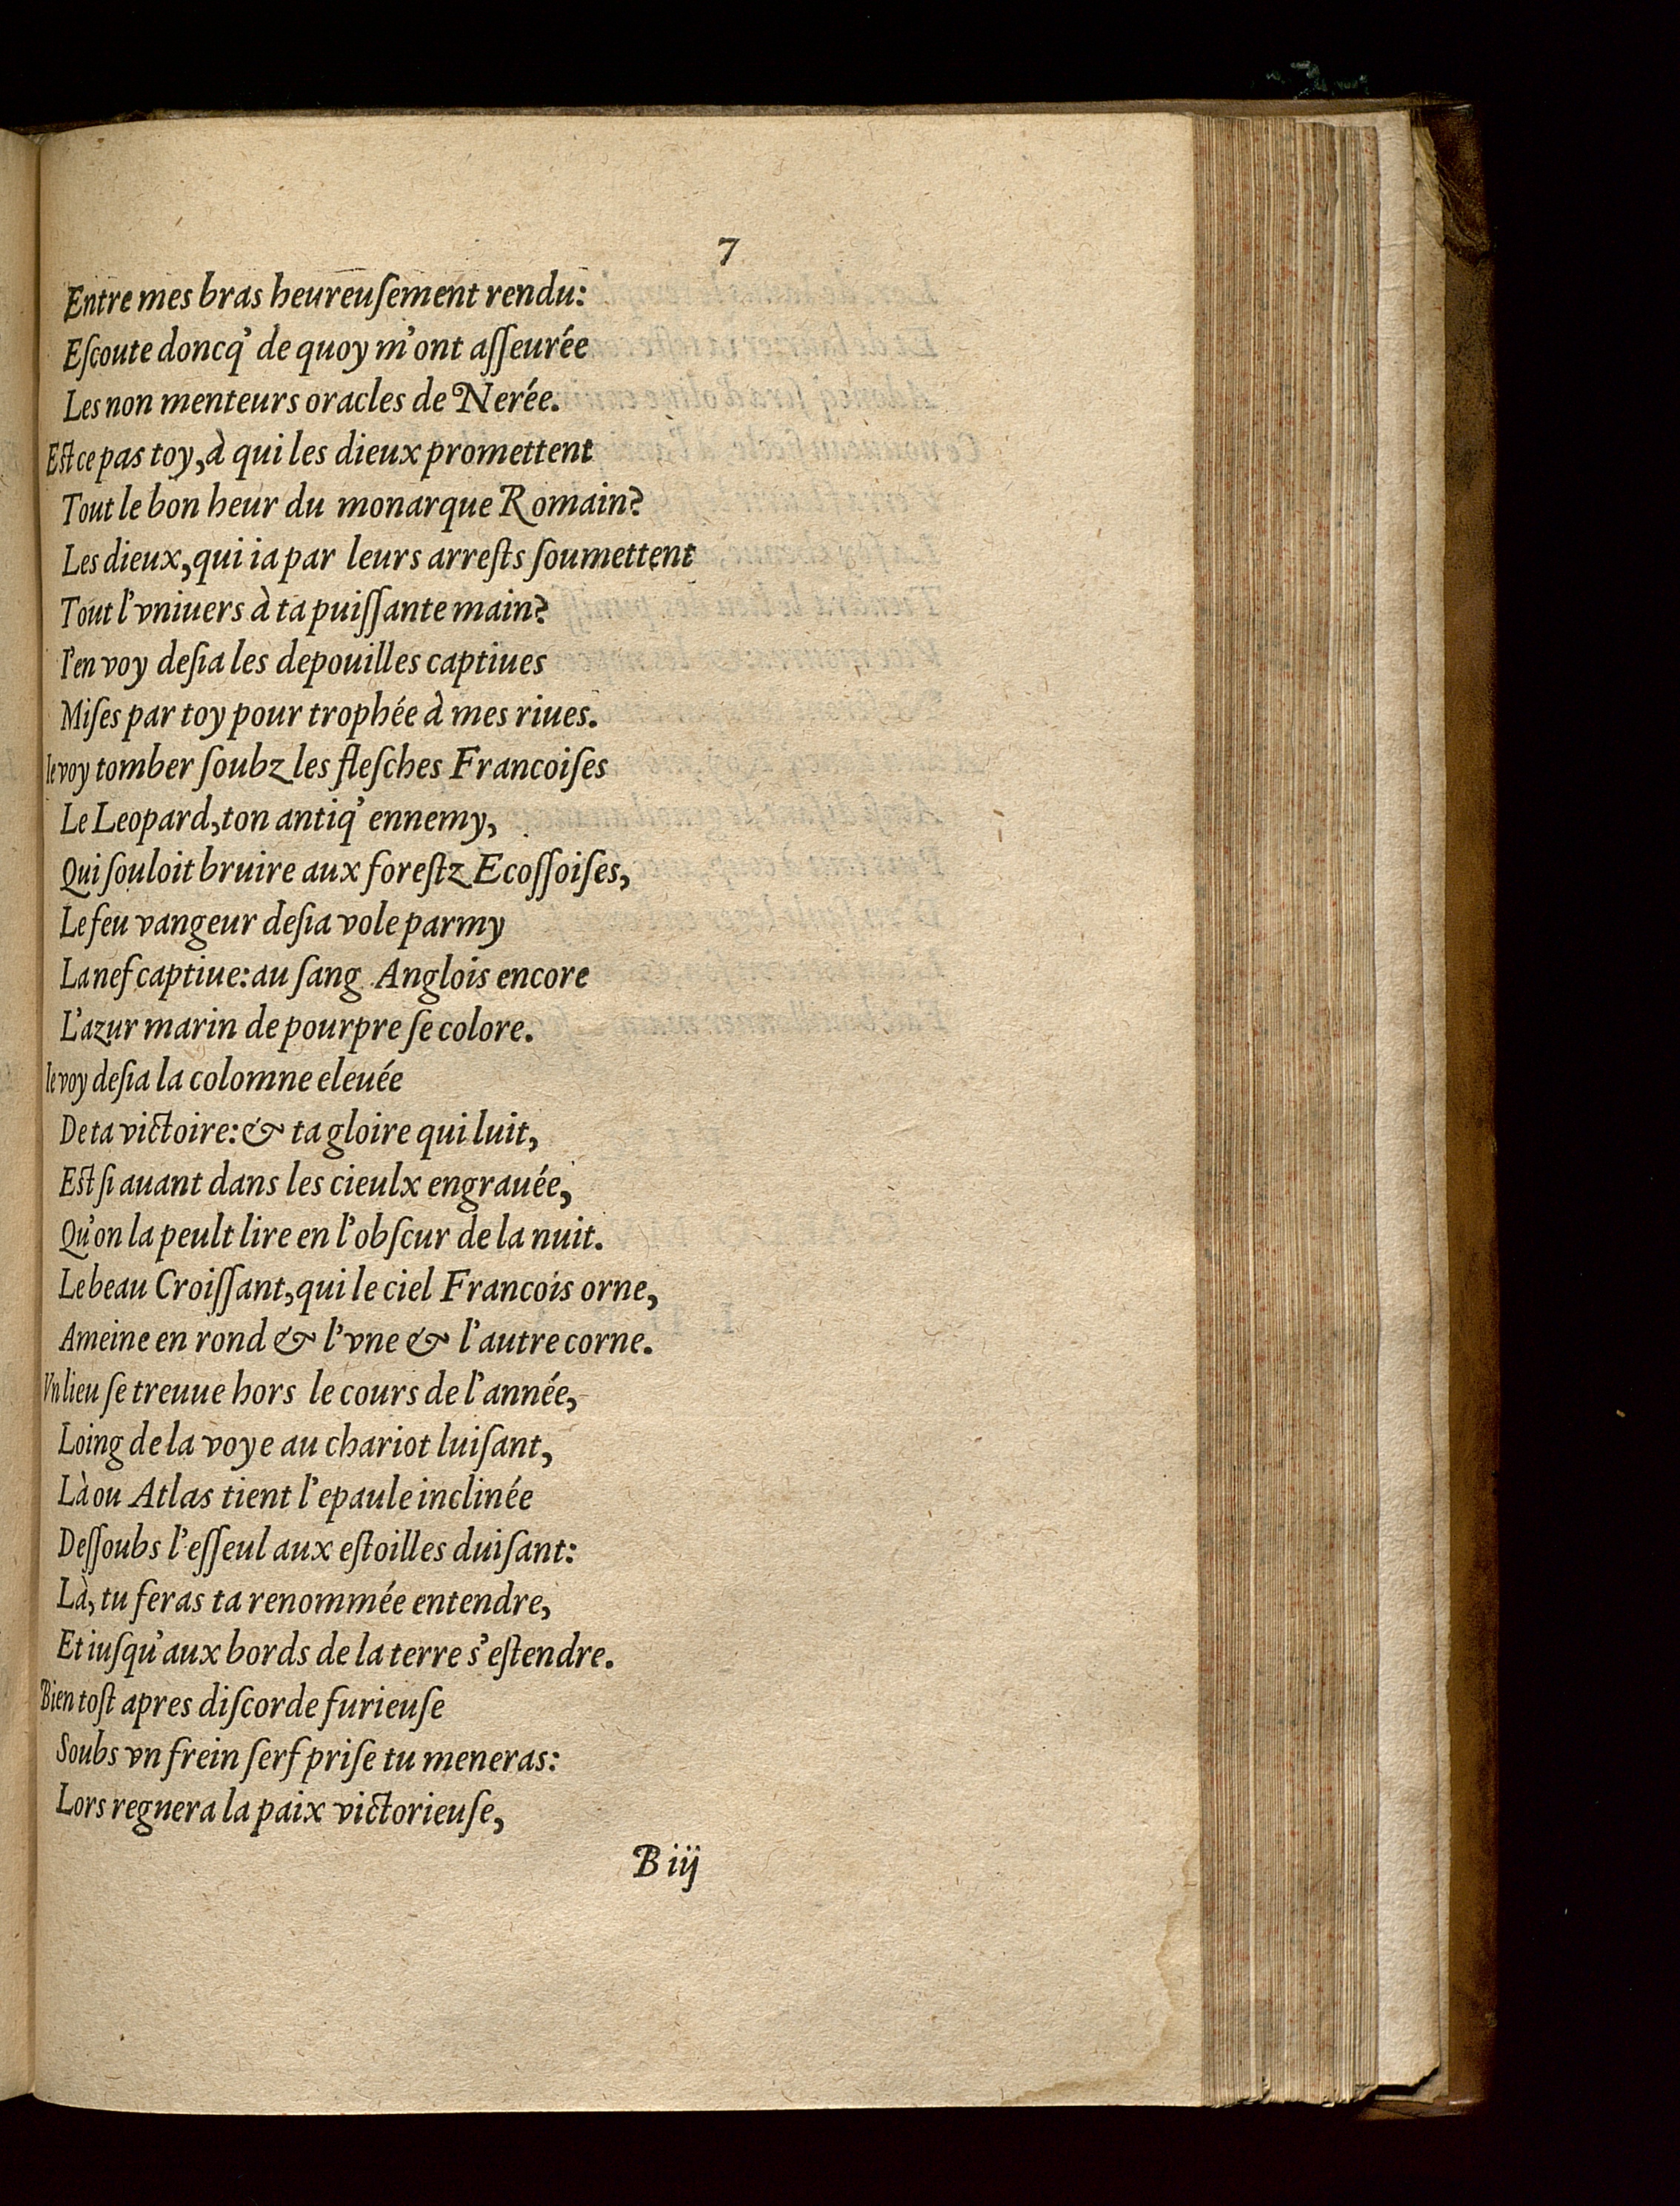 7
Entre mes bras heureuſement rendu:
Eſcoute doncq' de quoy m'ont aſſeurée
Les non menteurs oracles de Nerée.
Est ce pas toy, à qui les dieux promettent
Tout le bon heur du monarque Romain?
Les dieux, qui ia par leurs arreſts ſoumettent
Tout l'vniuers à ta puiſſante main?
I'en voy deſia les depouilles captiues
Miſes par toy pour trophée à mes riues.
Ie voy tomber ſoubz les fleſches Francoiſes
Le Leopard, ton antiq' ennemy,
Qui ſouloit bruire aux foreſtz Ecoſſoiſes,
Le feu vangeur deſia vole parmy
La nef captiue: au ſang Anglois encore
L'azur marin de pourpre ſe colore.
Ie voy deſia la colomne eleuée
De ta victoire: & ta gloire qui luit,
Est ſi auant dans les cieulx engrauée,
Qu'on la peult lire en l'obſcur de la nuit.
Le beau Croiſſant, qui le ciel Francois orne,
Ameine en rond & l'vne & l'autre corne.
Vn lieu ſe treuue hors le cours de l'année,
Loing de la voye au chariot luiſant,
Là ou Atlas tient l'epaule inclinée
Deſſoubs l'eſſeul aux eſtoilles duiſant:
Là, tu feras ta renommée entendre,
Et iuſqu'aux bords de la terre s'eſtendre.
Bien toſt apres diſcorde furieuſe
Soubs vn frein ſerf priſe tu meneras:
Lors regnera la paix victorieuſe,
B iij